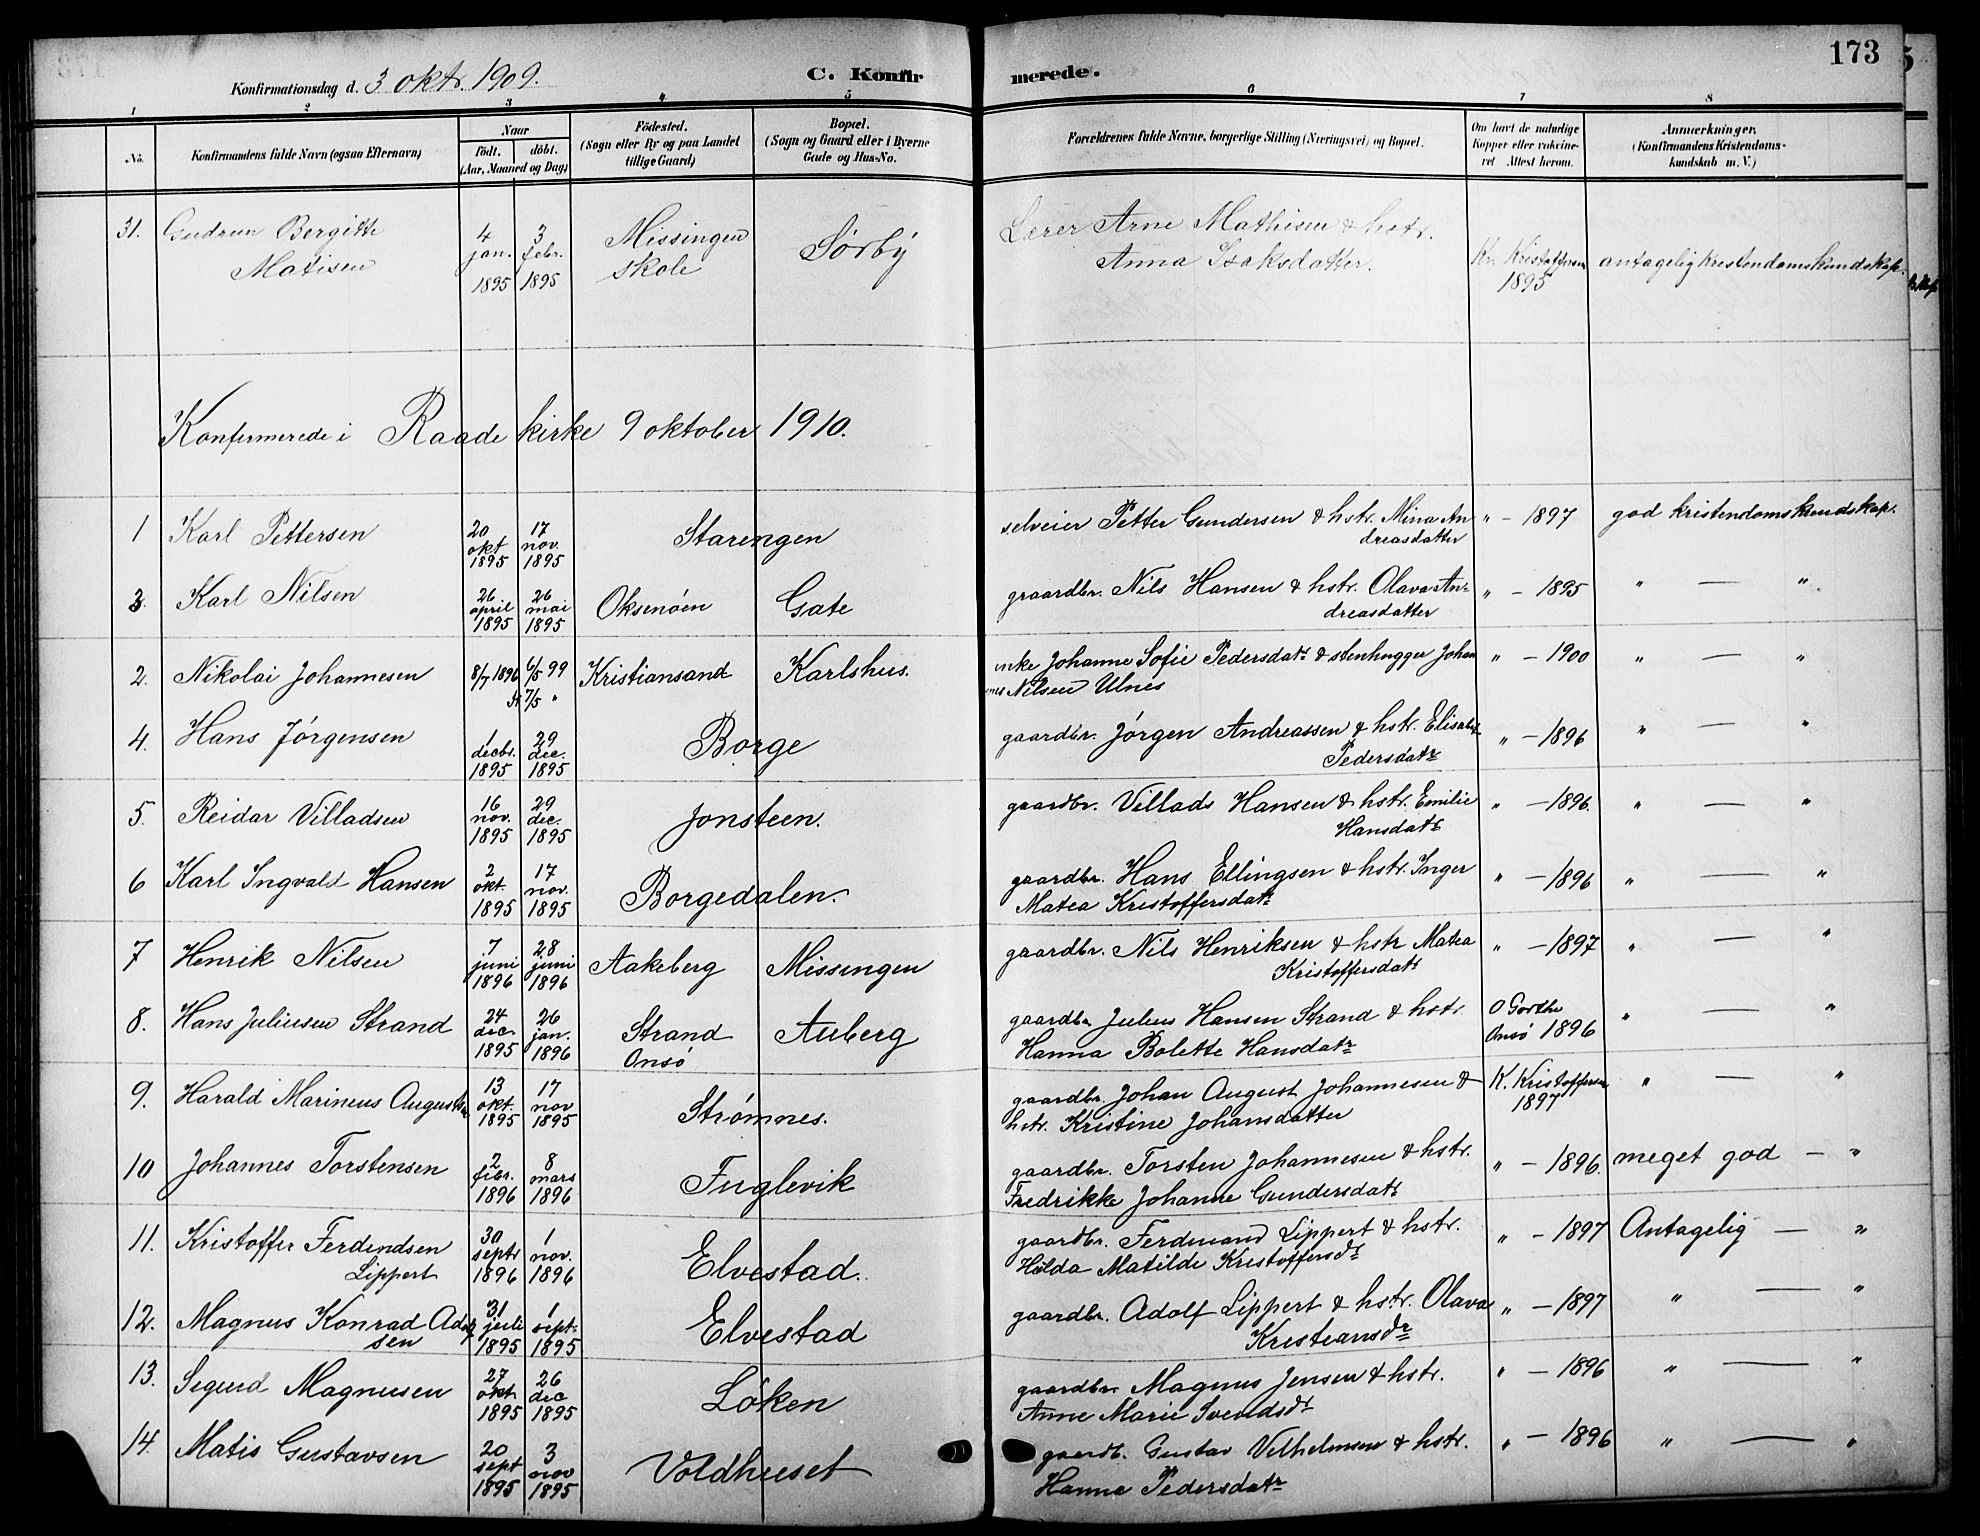 173
Konfirmationsdag d. 3 oktr. 1909. C. Konfirmerede.
1 2 3 4 5 6 7 8
No. Konfirmandens fulde Navn (ogsaa Efternavn) Naar födt. döbt. (Aar, Maaned og Dag)
Födested. (Sogn eller By og paa Landet tillige Gaard)
Bopæl. (Sogn og Gaard eller i Byerne Gade og Hus-No.
Forældrenes fulde Navne, borgerlige Stilling (Næringsvei) og Bopæl.
Om havt de naturlige Kopper eller vakcineret Attest herom.
Anmærkninger. (Konfirmandens Kristendomskundskab m. V.)
31. Gudrun Bergitte 4 jan. 1895 3 febr. 1895 Missingen Sørby Lærer Arne Mathisen & hstr. Kr. Kristoffersen antagelig kristendomskundskap.
Matisen skole Anna Isaksdatter. 1895
Konfirmerede i Raade kirke 9 oktober 1910.
1 Karl Pettersen 20 okt 1895 17 nov. 1895 Starengen selveier Petter Gundersen & hstr. Mina An " – 1897 god kristendomskundskap.
dreasdatter
3. Karl Nilsen 26 april 1895 26 mai 1895 Oksenöen Gate graardbr. Nils Hansen & hstr. Olava An- " – 1895 " — "
dreasdatter
2. Nikolai Johannesen 8/7 1896 6/5 99 Kristiansand Karlshus. enke Johanne Sofie Pedersdatr & stenhugger Johan " – 1900 " — "
St 7/5 " nes Nilsen Ulnes
4. Hans Jörgensen 1 decbr. 1895 29 dec. 1895 Borge gaardbr. Jörgen Andreassen & hstr. Elisabet " – 1896 " — "
Pedersdatr
5. Reidar Villadsen 16 nov. 1895 29 dec. 1895 Jonsteen. gaardbr. Villads Hansen & hstr. Emilie " – 1896. " — "
Hansdatr
6 Karl Ingvald Hansen 2 okt. 1895 17 nov. 1895 Borgedalen. gaardbr. Hans Ellingsen & hstr. Inger " – 1896 " — "
Matea Kristoffersdatr
7 Henrik Nilsen 7 juni 1896 28 juni 1896 Aakeberg Missingen gaardbr. Nils Henriksen & hstr Matea " – 1897 " — "
Kristoffersdatr
8. Hans Juliusen Strand 24 dec. 1895 26 jan. 1896 Strand Auberg gaardbr Julius Hansen Strand & hstr O Gorthe " — "
Onsö Hanna Bolette Hansdatr Onsö 1896
9. Harald Marineus Augustsen 13 okt. 1895 17 nov 1895 Strømnes. gaardbr. Johan August Johannesen & K. Kristoffersen " — "
hstr. Kristine Johansdatter 1897
10 Johannes Torstensen 2 febr. 1896 8 mars 1896 Fuglevik gaardbr. Torsten Johannesen & hstr. " – 1896. meget god — "
Fredrikke Johanne Gundersdatr
11. Kristoffer Ferdindsen 30 septr 1896 1 nov. 1896 Elvestad. gaardbr. Ferdinand Lippert & hstr. " – 1897 Antagelig — "
Lippert Hilda Matilde Kristoffersdr
12. Magnus Konrad Adolf 31 juli 1895 1 sept. 1895 Elvestad gaardbr. Adolf Lippert & hstr. Olava " – 1897 " — "
sen Kristiansdr
13. Sigurd Magnusen 27 okt 1895 26 dec 1895 Löken gaardbr. Magnus Jensen & hstr. " – 1896 " — "
Anne Marie Svendsdr
14. Matis Gustavsen 20 sept 1895 3 nov 1895 Voldhuset gaardb. Gustav Vilhelmsen & hstr. " – 1896 " — "
Hanne Pedersdatr